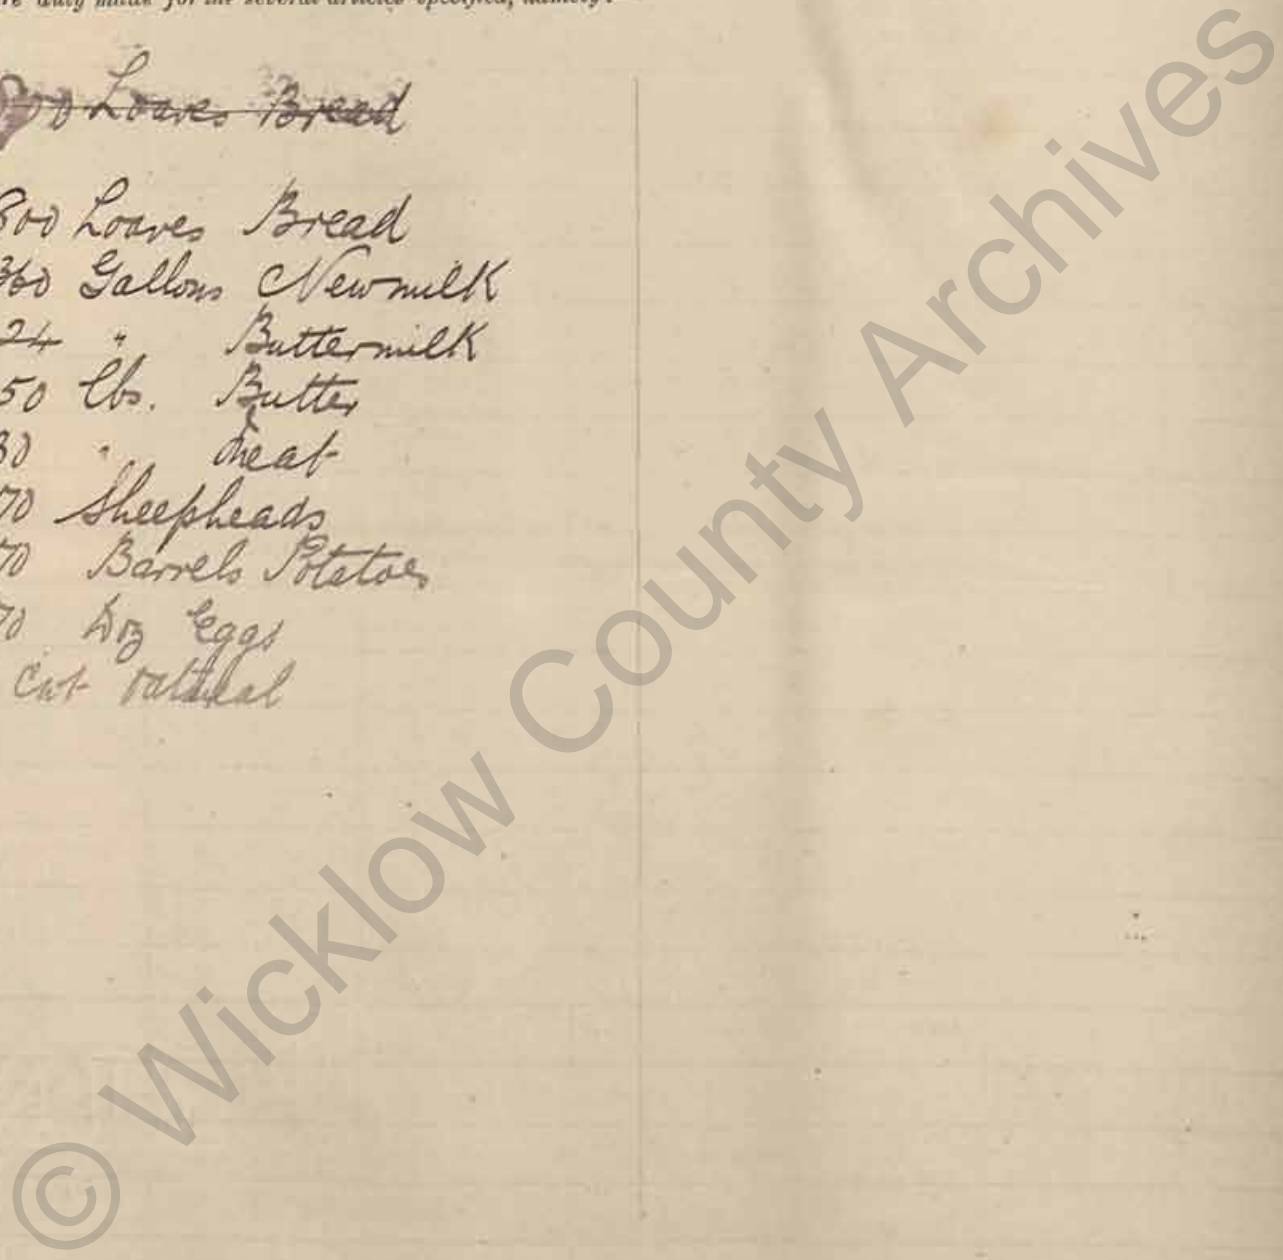 duly made for the several articles specified, namely:
Loaves Bread
800 Loaves Bread
360 Gallons Newmilk
24 " Buttermilk
50 lbs. Butter
30 " Meat
70 Sheepheads
70 Barrels Potatoes
70 Doz Eggs
Cwt Oatmeal
© Wicklow County Archives